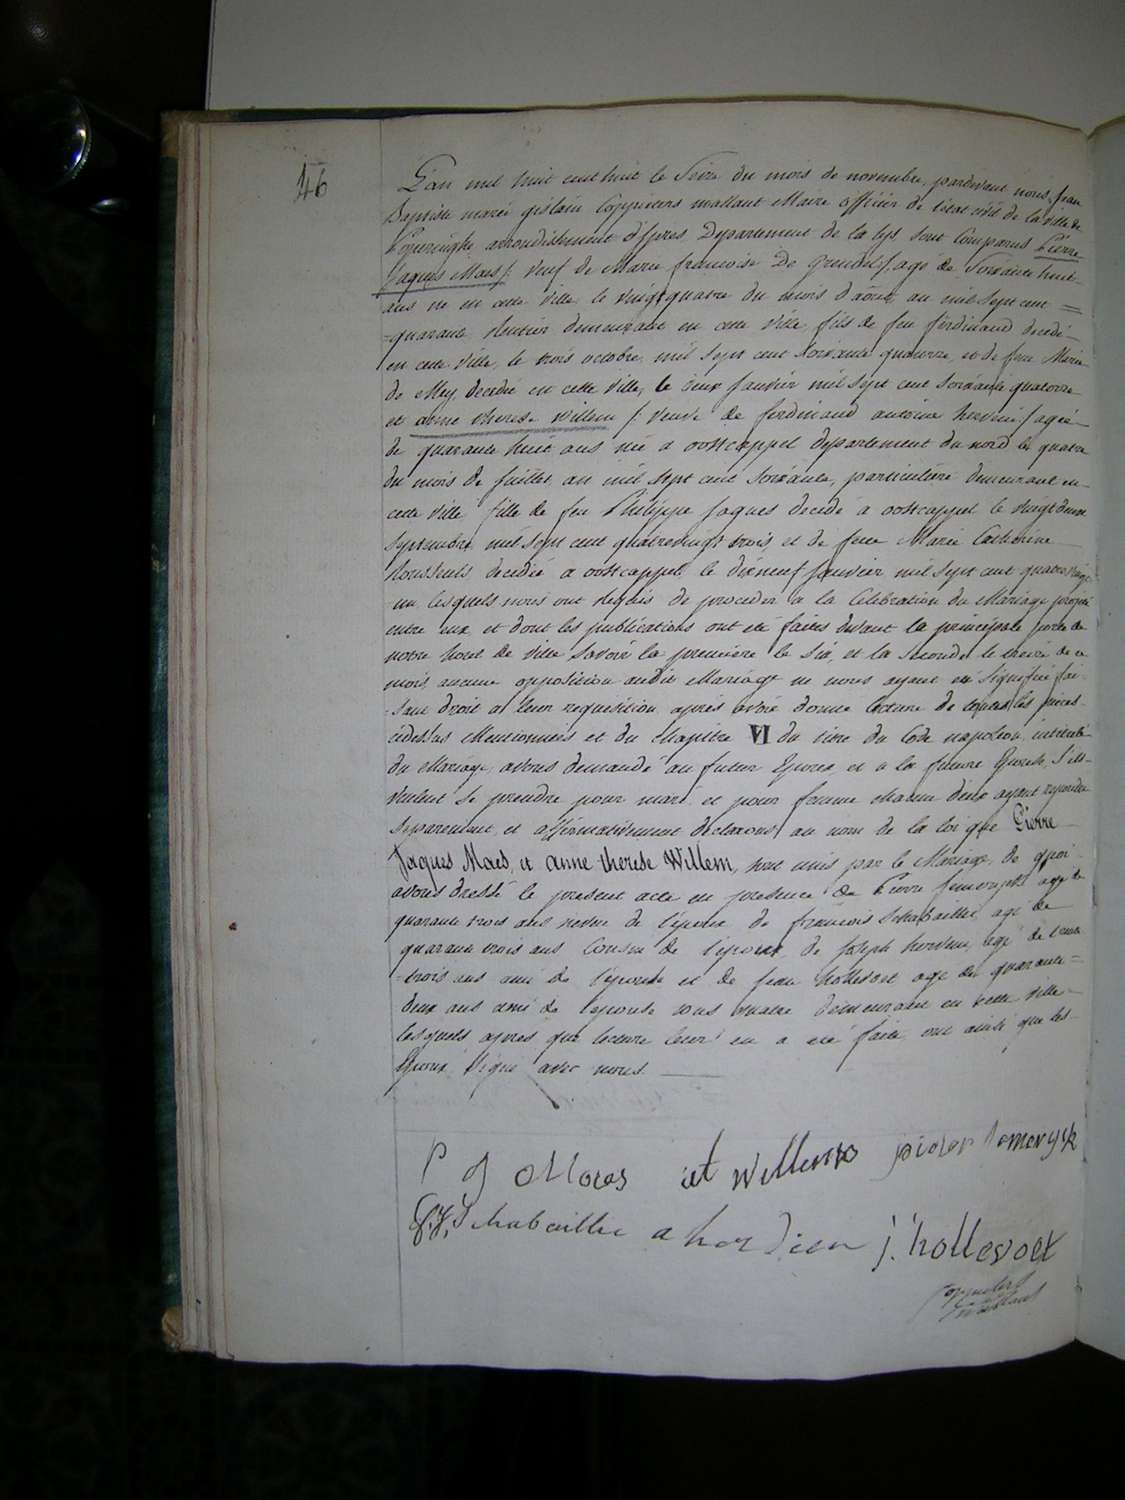 46
L'an mil huit cent huit le Seize du mois de novembre, pardevant nous Jean
Baptiste marie gislain Coppieters mallant Maire officier de l'état civil de la ville de
Poperinghe arrondissement d'Ypres Département de la Lys sont Comparus Pierre
Jaques Maes /: veuf de Marie francoise De :/ agé de Soixante huit
ans né en cette ville le vingtquatre du mois d'aout an mil sept cent
quarante Rentier demeurant en cette ville, fils de feu ferdinand decedé
en cette ville, le trois octobre mil sept cent Soixante quatorze, et de feue Marie
de Mey, decedée en cette ville, le deux Janvier mil sept cent soixante quatorze
et anne therese Willem /: veuve de ferdinand antoine :/ agée
de quarante huit ans née a oostcappel departement du nord le quatre
du mois de Juillet, an mil sept cent soixante, particulière demeurant en
cette ville fille de feu Philippe Jaques decedé à oostcappel le vingt
Septembre mil sept cent quatrevingt trois, et de feue Marie Catherine
decedée a oostcappel le dixneuf Janvier mil sept cent quatre vingt
un, lesquels nous ont requis de proceder a la Célébration du Mariage projeté
entre eux et dont les publications ont été faites devant la principale porte de
notre hotel de ville Savoir la première le Six, et la seconde le treize de ce
mois, aucune opposition audit Mariage ne nous ayant été Signifiée fai
sant droit a leur requisition après avoir donné lecture de toutes les pièces
cidessus Mentionnées et du Chapitre VI du titre du Code napoléon, intitulé
du Mariage, avons demandé au futur Epoux, et a la future Epouse, S'ils
veulent Se prendre pour mari et pour femme chacun deux ayant repondu
Separement, et affirmativement declarons au nom de la loi que Pierre
Jaques Maes, et anne therese Willem, sont unis par le Mariage, de quoi
avons dressé le present acte en presence de Pierre agé de
quarante trois ans neveu de l'époux de françois Schabaillie, agé de
quarante trois ans Cousin de l'époux, de Joseph agé de
trois ans ami de l'épouse et de Jean hollevoet agé de quarante
deux ans ami de l'épouse tous quatre demeurant en cette ville
lesquels apres que lecture leur en a été faite, ont ainsi que les
Epoux, Signé avec nous.
P J Maes et Willems pieter Lemerysk
Schabaillie j. hollevoet